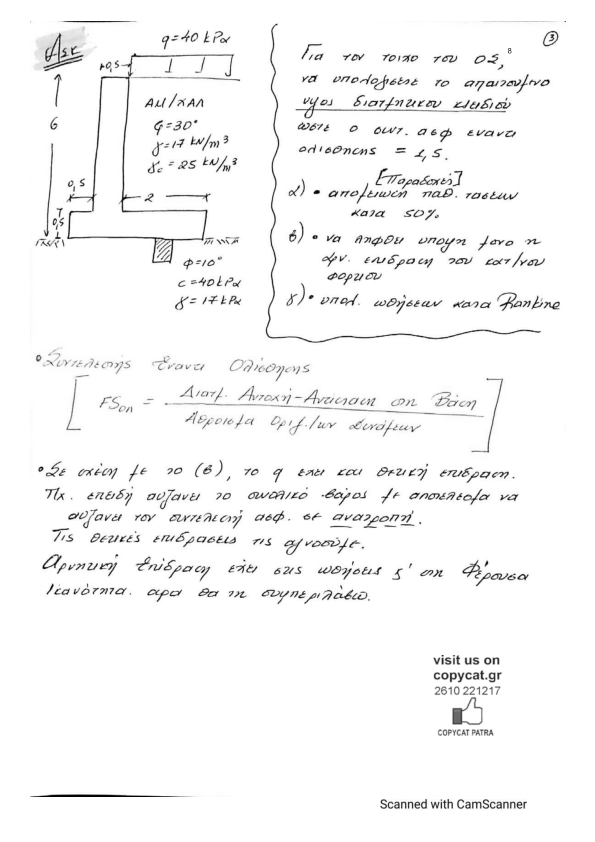 ③
Ασκ
q=40 kPa
0,5
6
ΑΜ/ΧΑΛ
φ=30°
γ=17 kN/m³
γc=25 kN/m³
0,5
2
0,5
φ=10°
c=40kPa
γ=17kPa
Για τον τοιχο του ΟΣ,
8
να υπολογισετε το απαιτουμενο
υψος διατμητικου κλειδιου
ωστε ο συντ. ασφ εναντι
ολισθησης = 1,5.
[Παραδοχές]
α) • απομειωση παθ. τασεων
κατα 50%
β) • να ληφθει υποψη μονο η
αρν. επιδραση του κατ/νου
φορτιου
γ) • υπολ. ωθήσεων κατα Rankine
• Συντελεστής Έναντι Ολίσθησης
FSολ = Διατμ. Αντοχή-Αντισταση στη Βάση
Αθροισμα Οριζ./ων Δυνάμεων
• Σε σχέση με το (β), το q εχει και θετική επιδραση.
Πχ. επειδή αυξανει το συνολικό βάρος με αποτελεσμα να
αυξανει τον συντελεστή ασφ. σε ανατροπή.
Τις θετικές επιδρασεις τις αγνοούμε.
Αρνητική Επίδραση εχει στις ωθήσεις ς' στη Φέρουσα
Ικανότητα. αρα θα τη συμπεριλάβω.
visit us on
copycat.gr
2610 221217
COPYCAT PATRA
Scanned with CamScanner